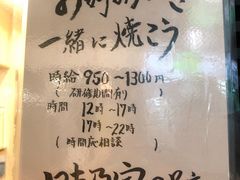 一緒に焼こう
時給 950〜1300円
(研修期間有)
時間 12時〜17時
17時〜22時
(時間応相談)